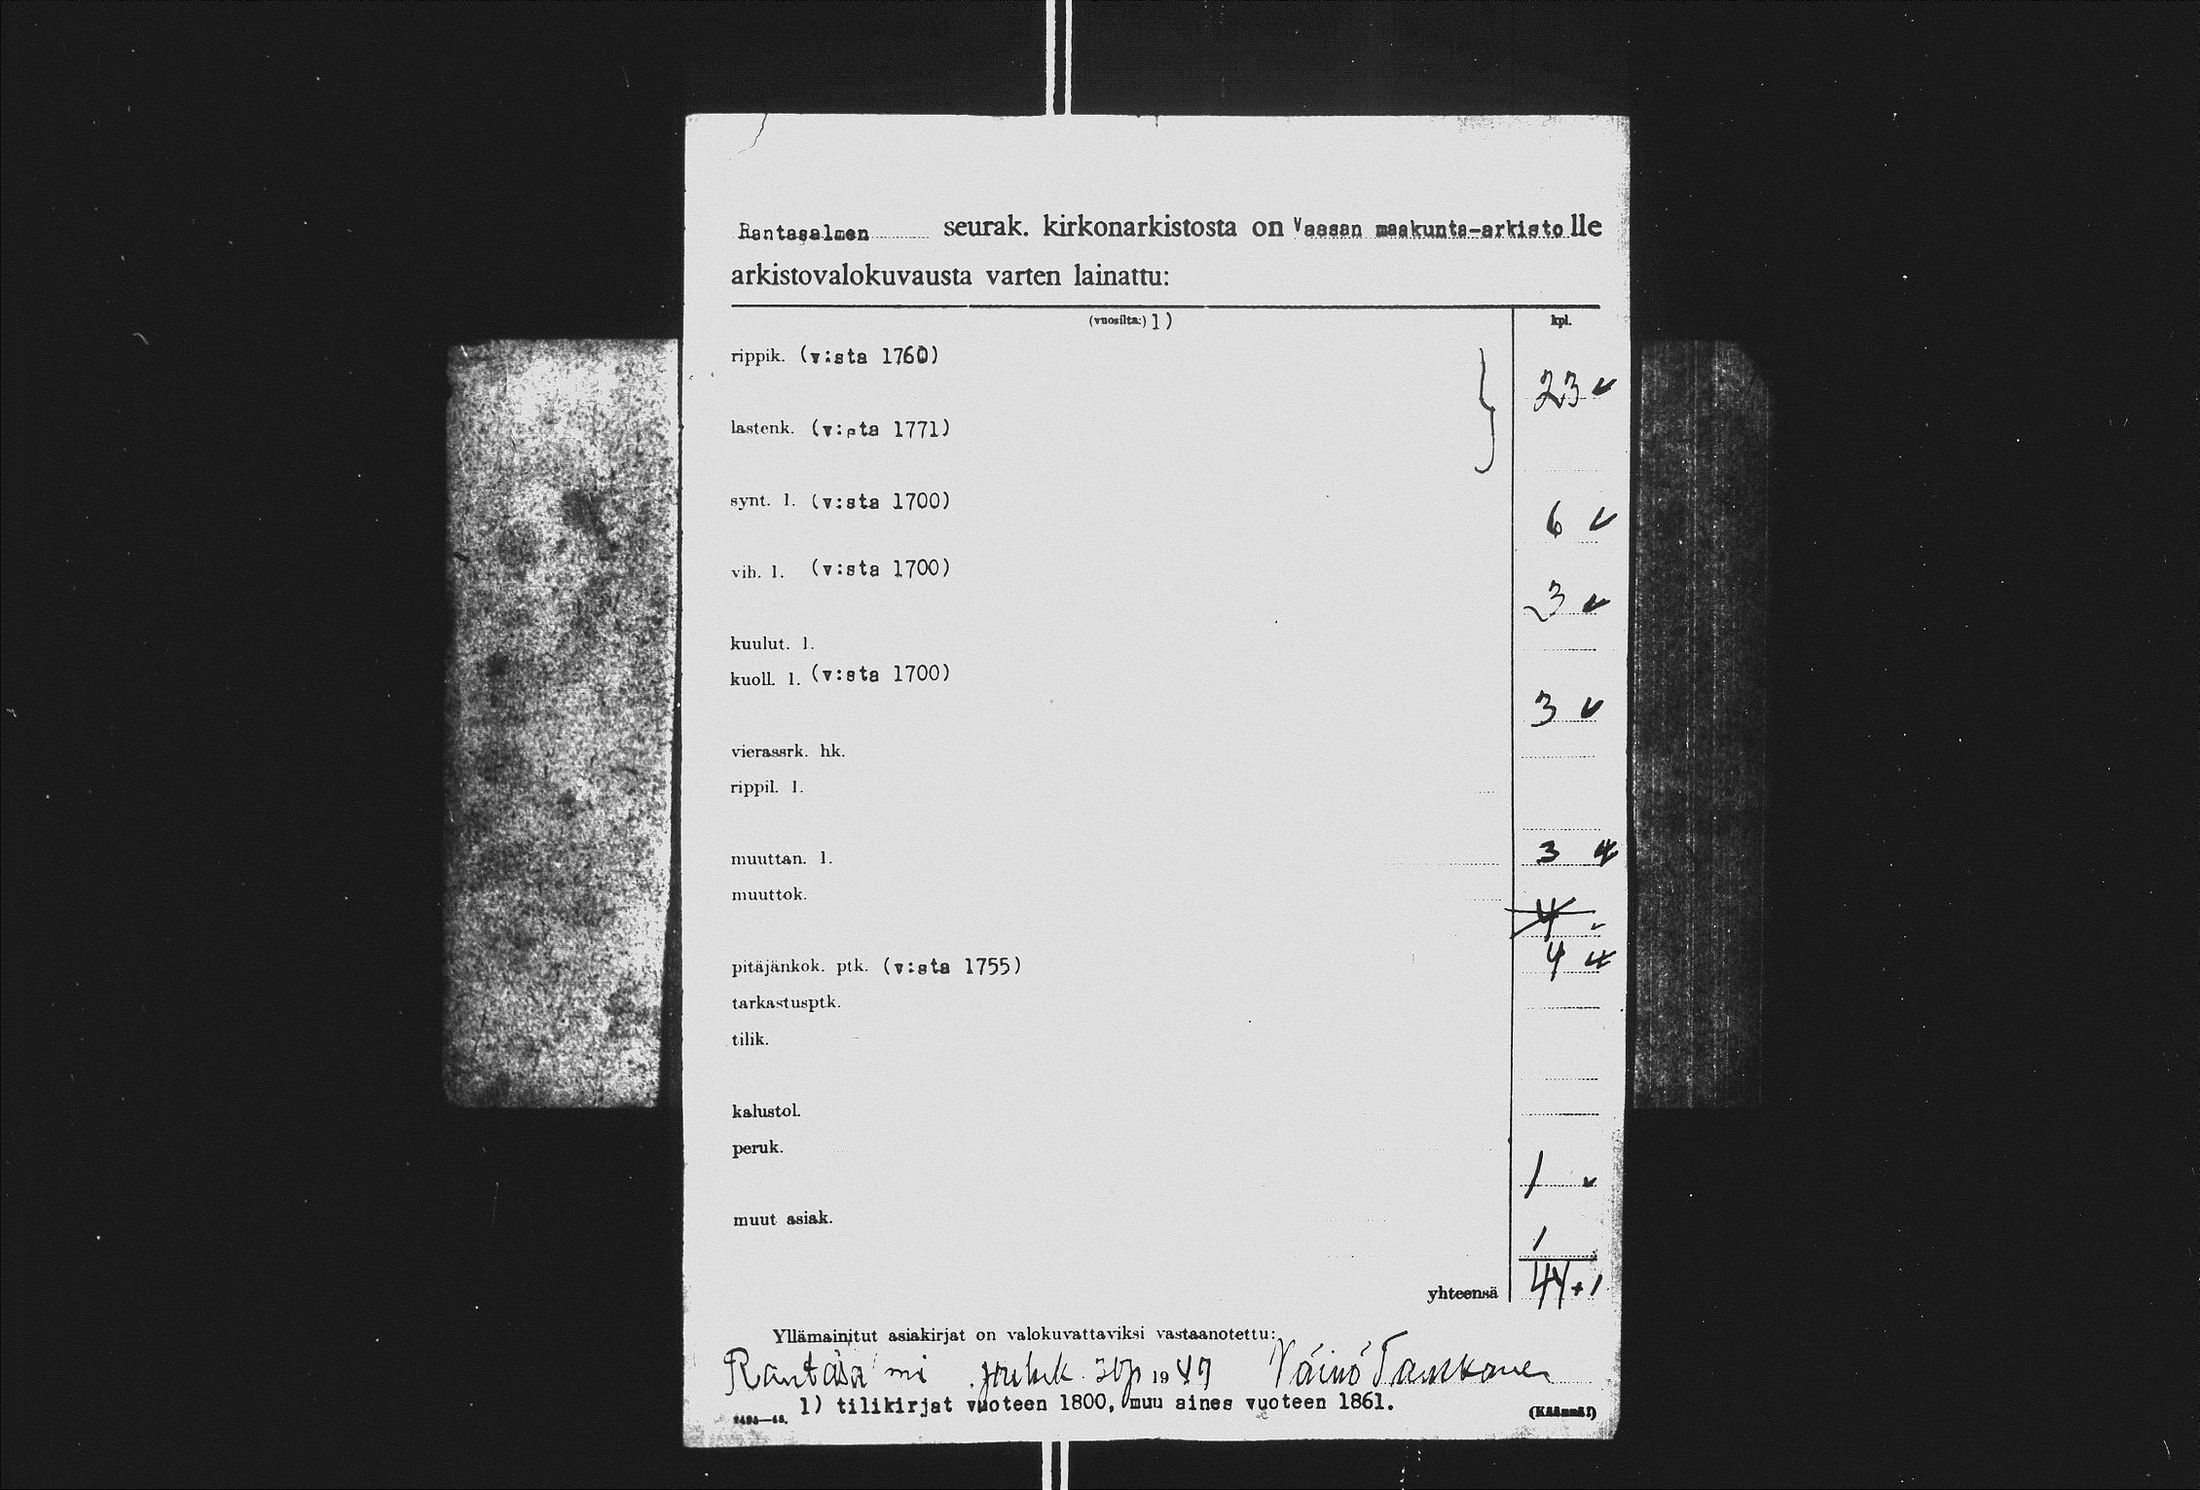 Rantasalmen seurak. kirkonarkistosta on Vaasan maakunta-arkistolle
arkistovalokuvausta varten lainattu:
(vuosilta:) 1) kpl.
rippik. (v:sta 1760) 23 ✓
lastenk. (v:sta 1771)
synt. l. (v:sta 1700) 6 ✓
vih. l. (v:sta 1700) 3 ✓
kuulut. l.
kuoll. l. (v:sta 1700) 3 ✓
vierassrk. hk.
rippil. l.
muuttan. l. 3 4
muuttok. 4
pitäjänkok. ptk. (v:sta 1755) 4 4
tarkastusptk.
tilik.
kalustol.
peruk. 1 ✓
muut asiak. 1
yhteensä 44+1
Yllämainitut asiakirjat on valokuvattaviksi vastaanotettu:
Rantasalmi jouluk. 30 p 1949 Väinö Tanskanen
1) tilikirjat vuoteen 1800, muu aines vuoteen 1861.
(Käännä!)